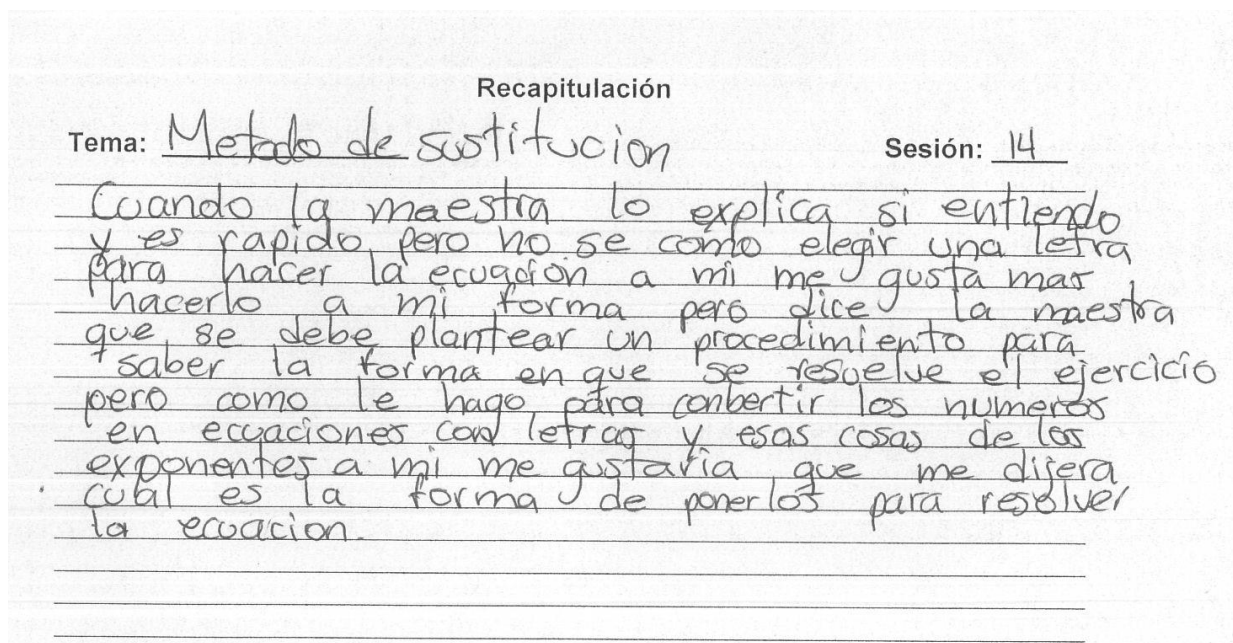 Recapitulación
Tema: Metodo de sustitucion Sesión: 14
Cuando la maestra lo explica si entiendo
y es rapido pero no se como elegir una letra
para hacer la ecuación a mi me gusta mas
hacerlo a mi forma pero dice la maestra
que se debe plantear un procedimiento para
saber la forma en que se resuelve el ejercicio
pero como le hago para conbertir los numeros
en ecuaciones con letras y esas cosas de los
exponentes a mi me gustaria que me dijera
cual es la forma de ponerlos para resolver
la ecuacion.